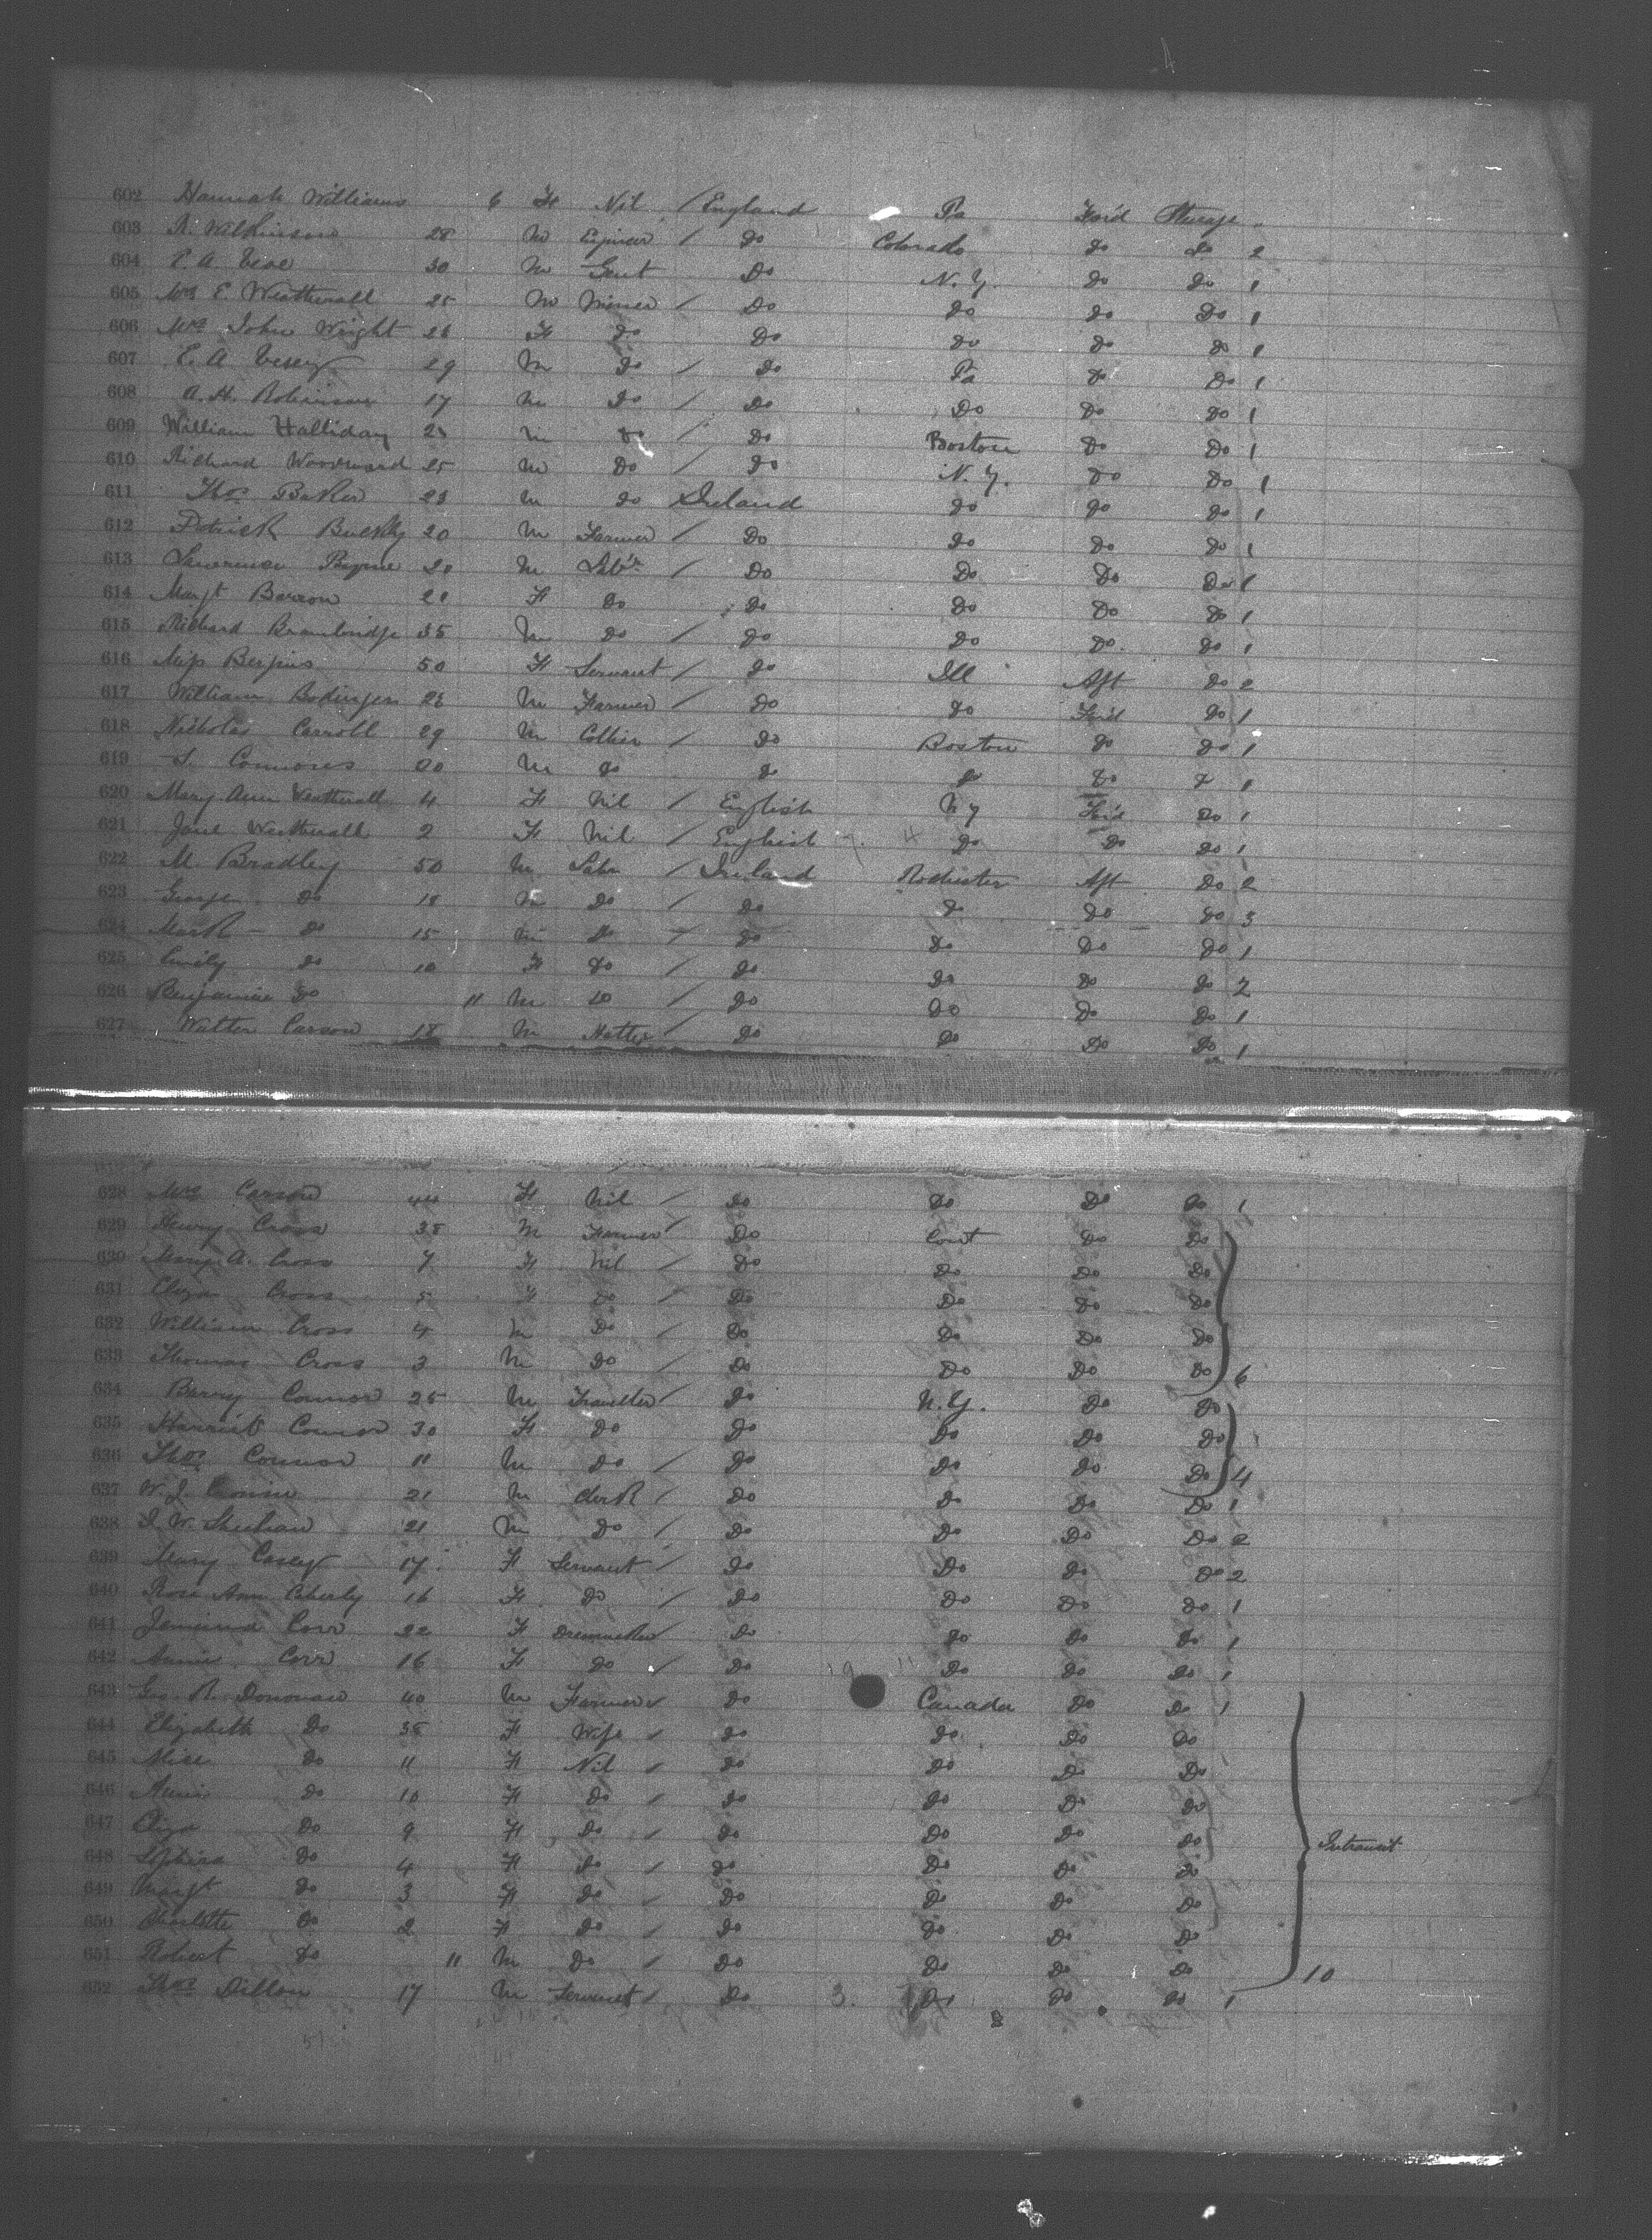 602 Hannah Williams 6 F Nil / England Pa For'd Steerage
603 R. Wilkinson 28 M Enineer / do Colorado do do 2
604 E. A. 30 M Gent Do N.Y. do do 1
605 Mrs E. Weatherall 25 M Miner / Do do do Do 1
606 Mrs John Wright 26 F do Do do do do 1
607 E. A. Vesey 29 M do / do Pa do Do 1
608 A. H. Robinson 17 M do / Do Do Do do 1
609 William Halliday 25 M do / do Boston Do Do 1
610 Richard Woodward 25 M Do / do N.Y. Do Do 1
611 Thos Baker 23 M do Ireland do do do 1
612 Patrick Buckly 20 M Farmer / Do do Do do 1
613 Lawrence 20 M Lab'r / Do Do Do Do 1
614 Margt Barron 21 F Do do Do Do Do 1
615 Richard Brambridge 35 M do / do Do Do do 1
616 Miss 50 F Servant / do Ill Aft Do 2
617 William 26 M Farmer / Do do For'd do 1
618 Nicholas Carroll 29 M Collier / do Boston do do 1
619 Connores 20 M do do do Do do 1
620 Mary Ann Weatherall 4 F Nil / English N Y For'd do 1
621 Jane Weatherall 2 F Nil / English do Do do 1
622 M. Bradley 50 M Labr / Ireland Rochester Aft Do 2
623 George do 18 M Do / do do do do 3
624 Mark do 15 M do / do do Do Do 1
625 Emily do 10 F Do / do do do do 2
626 Benjamin do 11 M do / do do Do Do 1
627 Walter Carson 18 M Hatter / do do Do Do 1
628 Mrs Carson 44 F Nil / do Do Do do 1
629 Henry Cross 38 M Farmer / Do Cont Do Do
630 Mary A. Cross 7 F Nil / Do Do Do Do
631 Eliza Cross 5 F Do / Do Do do Do
632 William Cross 4 M Do / Do Do Do Do
633 Thomas Cross 3 M Do / Do Do Do Do 6
634 Barny Connor 25 M Traveller / do N.Y. Do Do
635 Harriet Connor 30 F Do do Do Do Do
636 Thos Connor 11 M Do / do Do Do Do 4
637 W. J. Cronin 21 M Clerk / Do Do Do Do 1
638 J. W. Sheehan 21 M do / Do Do Do Do 2
639 Mary Casey 17 F Servant / do Do do Do 2
640 Rose Ann 16 F do / Do Do Do do 1
641 Jemima Corr 22 F Dressmaker / do do do do 1
642 Annie Corr 16 F do / Do Do do Do 1
643 Geo. R. Donovan 40 M Farmer / do Canada do Do 1
644 Elizabeth Do 38 F Wife / do do Do Do
645 Alice Do 11 F Nil / do do Do Do
646 Annie Do 10 F do / do do Do do
647 Eliza Do 9 F Do / do Do Do do Intransit
648 Sophira Do 4 F do / do Do Do do
649 Margt Do 3 F do / Do Do Do Do
650 Charlotte Do 2 F do / do do Do do
651 Robert Do 11 M Do / do Do Do Do 10
652 Thos Dillon 17 M Servant / Do Do do do 1